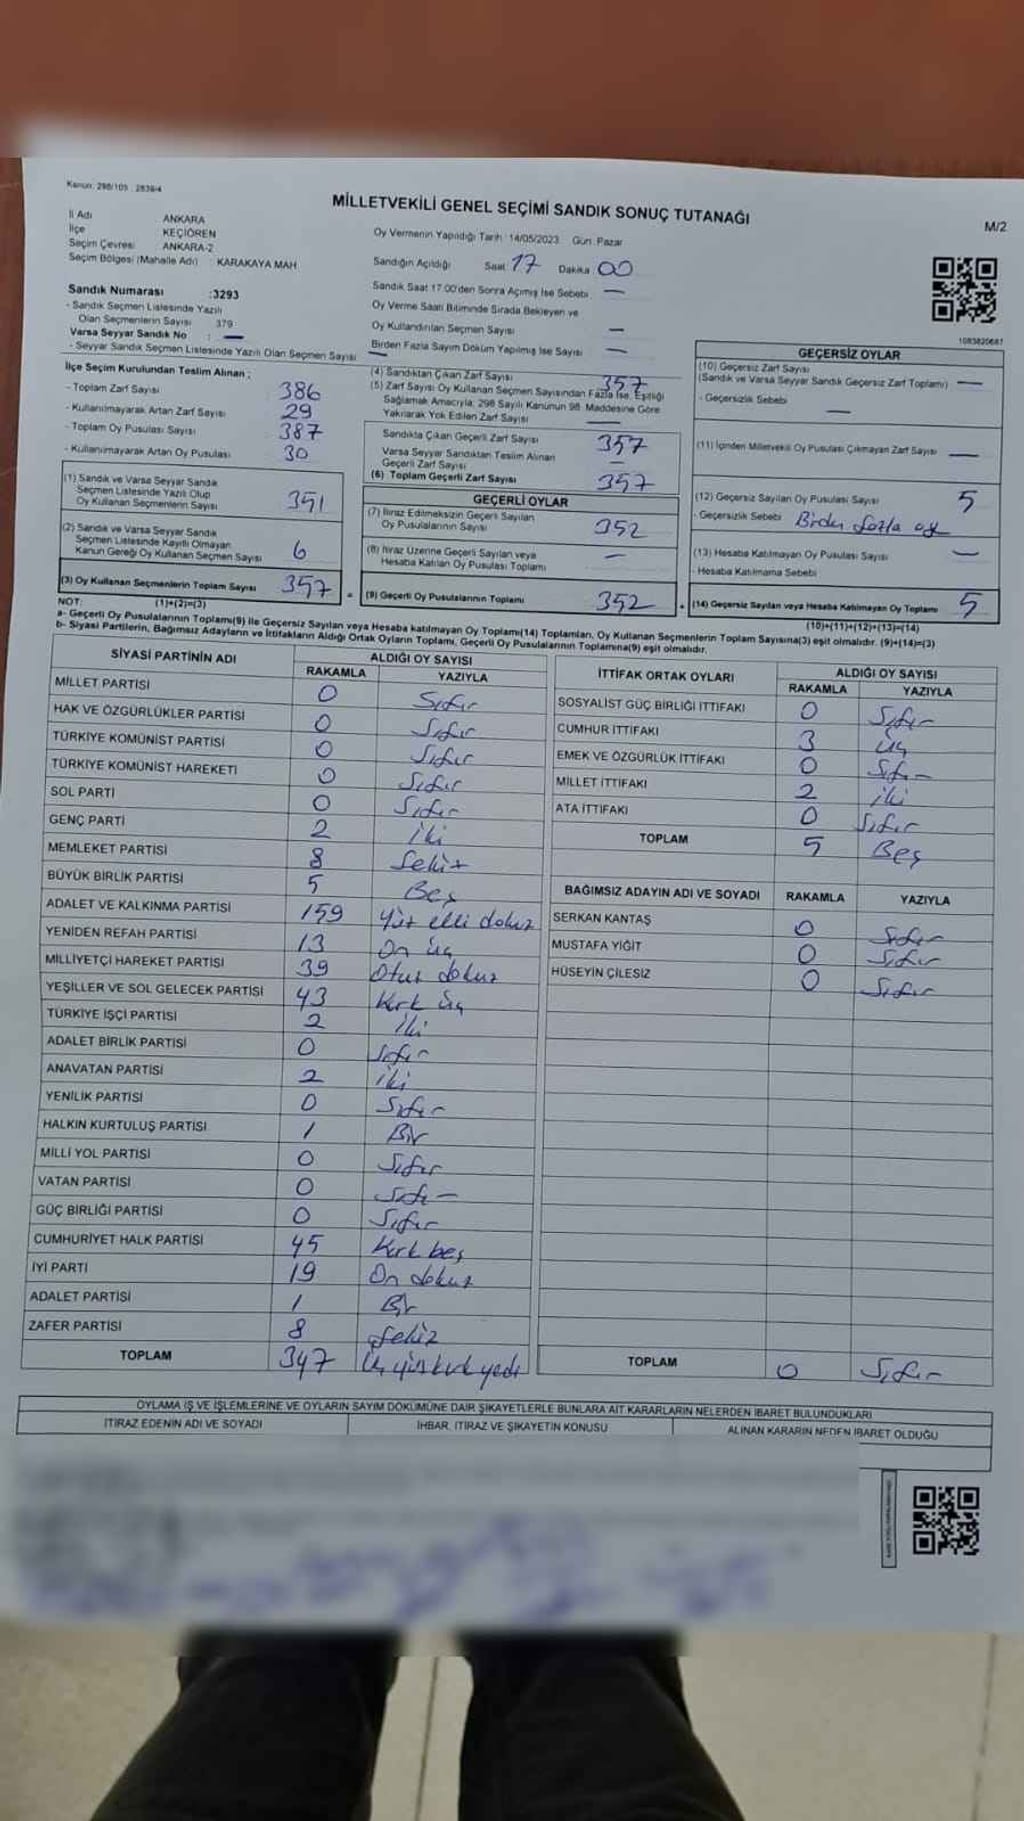 Kanun: 298/105 : 2839/4
MİLLETVEKİLİ GENEL SEÇİMİ SANDIK SONUÇ TUTANAĞI
M/2
İl Adı : ANKARA
İlçe : KEÇİÖREN
Seçim Çevresi : ANKARA-2
Seçim Bölgesi (Mahalle Adı) : KARAKAYA MAH
Oy Vermenin Yapıldığı Tarih: 14/05/2023 Gün: Pazar
Sandığın Açıldığı Saat 17 Dakika 00
Sandık Saat 17:00'den Sonra Açımış İse Sebebi —
Oy Verme Saati Bitiminde Sırada Bekleyen ve
Oy Kullandırılan Seçmen Sayısı —
Birden Fazla Sayım Döküm Yapılmış İse Sayısı —
Sandık Numarası :3293
- Sandık Seçmen Listesinde Yazılı
Olan Seçmenlerin Sayısı 379
Varsa Seyyar Sandık No : —
- Seyyar Sandık Seçmen Listesinde Yazılı Olan Seçmen Sayısı —
İlçe Seçim Kurulundan Teslim Alınan ;
- Toplam Zarf Sayısı : 386
- Kullanılmayarak Artan Zarf Sayısı : 29
- Toplam Oy Pusulası Sayısı : 387
- Kullanılmayarak Artan Oy Pusulası : 30
(1) Sandık ve Varsa Seyyar Sandık
Seçmen Listesinde Yazılı Olup
Oy Kullanan Seçmenlerin Sayısı 351
(2) Sandık ve Varsa Seyyar Sandık
Seçmen Listesinde Kayıtlı Olmayan
Kanun Gereği Oy Kullanan Seçmen Sayısı 6
(3) Oy Kullanan Seçmenlerin Toplam Sayısı 357
(1)+(2)=(3)
(4) Sandıktan Çıkan Zarf Sayısı 357
(5) Zarf Sayısı Oy Kullanan Seçmen Sayısından Fazla İse, Eşitliği
Sağlamak Amacıyla; 298 Sayılı Kanunun 98. Maddesine Göre
Yakılarak Yok Edilen Zarf Sayısı —
Sandıkta Çıkan Geçerli Zarf Sayısı 357
Varsa Seyyar Sandıktan Teslim Alınan
Geçerli Zarf Sayısı —
(6) Toplam Geçerli Zarf Sayısı 357
GEÇERLİ OYLAR
(7) İtiraz Edilmeksizin Geçerli Sayılan
Oy Pusulalarının Sayısı 352
(8) İtiraz Üzerine Geçerli Sayılan veya
Hesaba Katılan Oy Pusulası Toplamı —
= (9) Geçerli Oy Pusulalarının Toplamı 352
1083820687
GEÇERSİZ OYLAR
(10) Geçersiz Zarf Sayısı
(Sandık ve Varsa Seyyar Sandık Geçersiz Zarf Toplamı) —
- Geçersizlik Sebebi —
(11) İçinden Milletvekili Oy Pusulası Çıkmayan Zarf Sayısı —
(12) Geçersiz Sayılan Oy Pusulası Sayısı 5
- Geçersizlik Sebebi Birden fazla oy
(13) Hesaba Katılmayan Oy Pusulası Sayısı —
- Hesaba Katılmama Sebebi
+ (14) Geçersiz Sayılan veya Hesaba Katılmayan Oy Toplamı 5
(10)+(11)+(12)+(13)=(14)
NOT:
a- Geçerli Oy Pusulalarının Toplamı(9) ile Geçersiz Sayılan veya Hesaba katılmayan Oy Toplamı(14) Toplamları, Oy Kullanan Seçmenlerin Toplam Sayısına(3) eşit olmalıdır. (9)+(14)=(3)
b- Siyasi Partilerin, Bağımsız Adayların ve İttifakların Aldığı Ortak Oyların Toplamı, Geçerli Oy Pusulalarının Toplamına(9) eşit olmalıdır.
SİYASİ PARTİNİN ADI ALDIĞI OY SAYISI
RAKAMLA YAZIYLA
MİLLET PARTİSİ 0 Sıfır
HAK VE ÖZGÜRLÜKLER PARTİSİ 0 Sıfır
TÜRKİYE KOMÜNİST PARTİSİ 0 Sıfır
TÜRKİYE KOMÜNİST HAREKETİ 0 Sıfır
SOL PARTİ 0 Sıfır
GENÇ PARTİ 2 İki
MEMLEKET PARTİSİ 8 Sekiz
BÜYÜK BİRLİK PARTİSİ 5 Beş
ADALET VE KALKINMA PARTİSİ 159 Yüz elli dokuz
YENİDEN REFAH PARTİSİ 13 On üç
MİLLİYETÇİ HAREKET PARTİSİ 39 Otuz dokuz
YEŞİLLER VE SOL GELECEK PARTİSİ 43 Kırk üç
TÜRKİYE İŞÇİ PARTİSİ 2 İki
ADALET BİRLİK PARTİSİ 0 Sıfır
ANAVATAN PARTİSİ 2 İki
YENİLİK PARTİSİ 0 Sıfır
HALKIN KURTULUŞ PARTİSİ 1 Bir
MİLLİ YOL PARTİSİ 0 Sıfır
VATAN PARTİSİ 0 Sıfır
GÜÇ BİRLİĞİ PARTİSİ 0 Sıfır
CUMHURİYET HALK PARTİSİ 45 Kırk beş
İYİ PARTİ 19 On dokuz
ADALET PARTİSİ 1 Bir
ZAFER PARTİSİ 8 Sekiz
TOPLAM 347 Üç yüz kırk yedi
İTTİFAK ORTAK OYLARI ALDIĞI OY SAYISI
RAKAMLA YAZIYLA
SOSYALİST GÜÇ BİRLİĞİ İTTİFAKI 0 Sıfır
CUMHUR İTTİFAKI 3 üç
EMEK VE ÖZGÜRLÜK İTTİFAKI 0 Sıfır
MİLLET İTTİFAKI 2 iki
ATA İTTİFAKI 0 Sıfır
TOPLAM 5 Beş
BAĞIMSIZ ADAYIN ADI VE SOYADI RAKAMLA YAZIYLA
SERKAN KANTAŞ 0 Sıfır
MUSTAFA YİĞİT 0 Sıfır
HÜSEYİN ÇİLESİZ 0 Sıfır
TOPLAM 0 Sıfır
OYLAMA İŞ VE İŞLEMLERİNE VE OYLARIN SAYIM DÖKÜMÜNE DAİR ŞİKAYETLERLE BUNLARA AİT KARARLARIN NELERDEN İBARET BULUNDUKLARI
İTİRAZ EDENİN ADI VE SOYADI İHBAR, İTİRAZ VE ŞİKAYETİN KONUSU ALINAN KARARIN NEDEN İBARET OLDUĞU